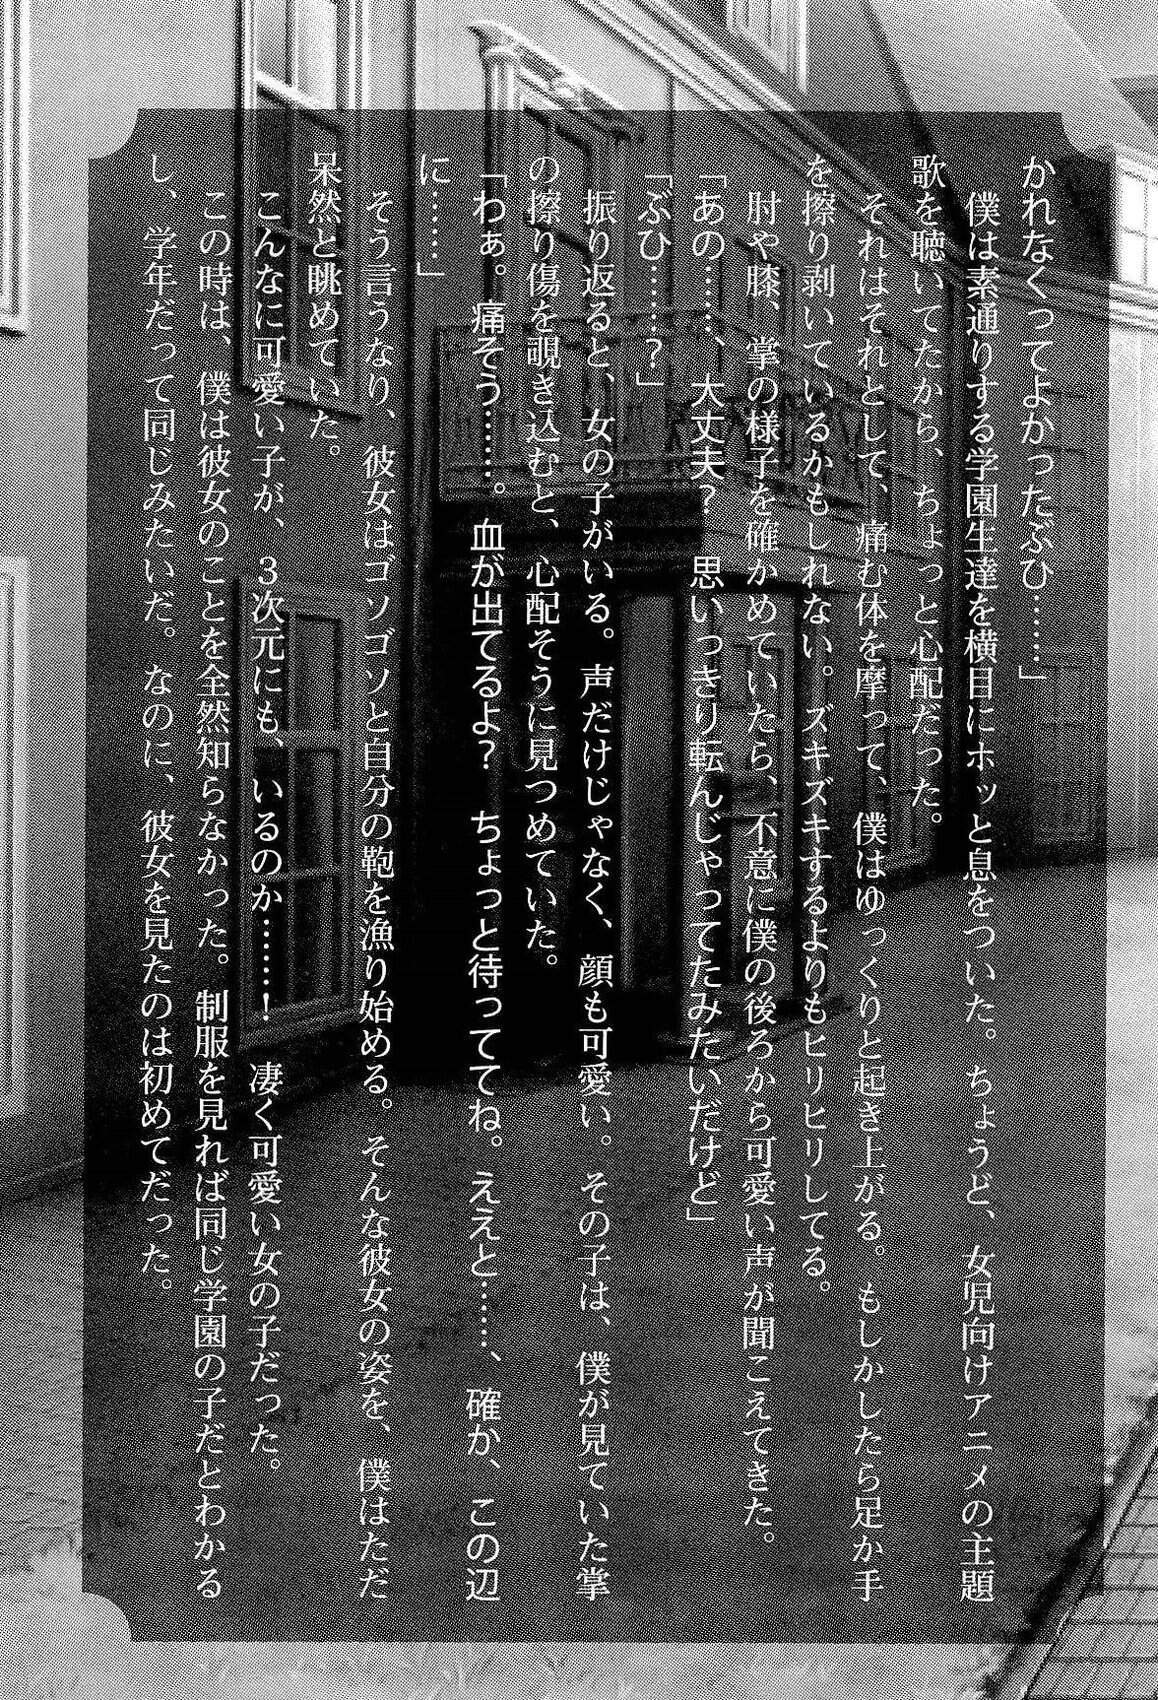 かれなくってよかったぶひ……」
　僕は素通りする学園生達を横目にホッと息をついた。ちょうど、女児向けアニメの主題
歌を聴いてたから、ちょっと心配だった。
　それはそれとして、痛む体を摩って、僕はゆっくりと起き上がる。もしかしたら足か手
を擦り剥いているかもしれない。ズキズキするよりもヒリヒリしてる。
　肘や膝、掌の様子を確かめていたら、不意に僕の後ろから可愛い声が聞こえてきた。
「あの……、大丈夫？　思いっきり転んじゃってたみたいだけど」
「ぶひ……？」
　振り返ると、女の子がいる。声だけじゃなく、顔も可愛い。その子は、僕が見ていた掌
の擦り傷を覗き込むと、心配そうに見つめていた。
「わぁ。痛そう……。血が出てるよ？　ちょっと待っててね。ええと……、確か、この辺
に……」
　そう言うなり、彼女はゴソゴソと自分の鞄を漁り始める。そんな彼女の姿を、僕はただ
呆然と眺めていた。
　こんなに可愛い子が、３次元にも、いるのか……！　凄く可愛い女の子だった。
　この時は、僕は彼女のことを全然知らなかった。制服を見れば同じ学園の子だとわかる
し、学年だって同じみたいだ。なのに、彼女を見たのは初めてだった。